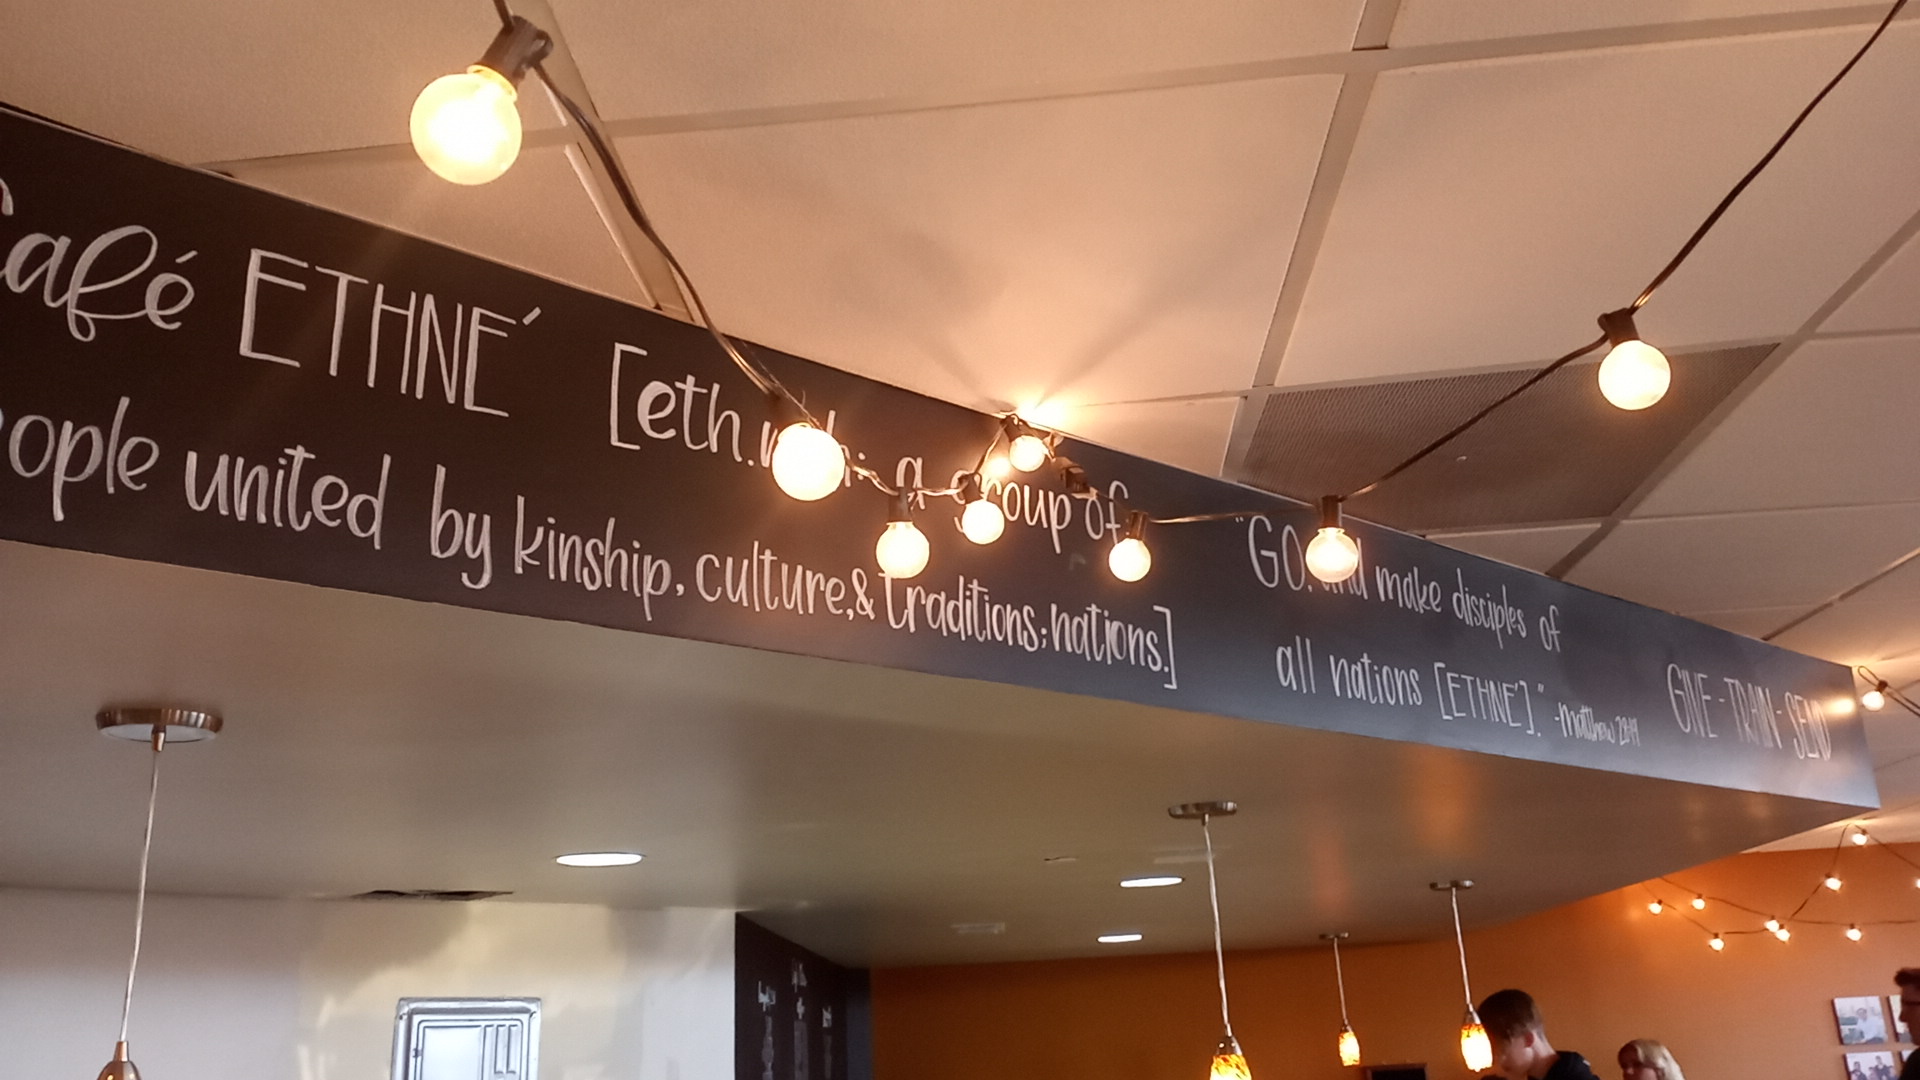 Café ETHNE´ [eth.nah: a group of
people united by kinship, culture, & traditions; nations.]
"GO, and make disciples of
all nations [ETHNE´]." -Matthew 28:19
GIVE - TRAIN - SEND